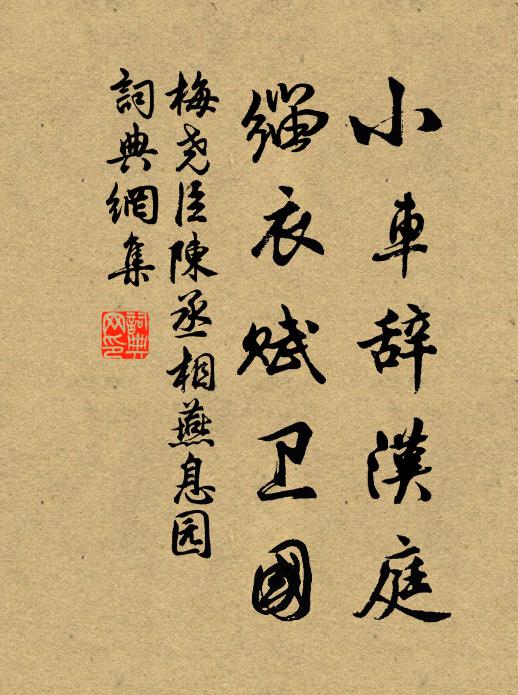 小車辞漢庭
缁衣赋卫國
梅尧臣陳丞相燕息园
詞典網集
詞典网印